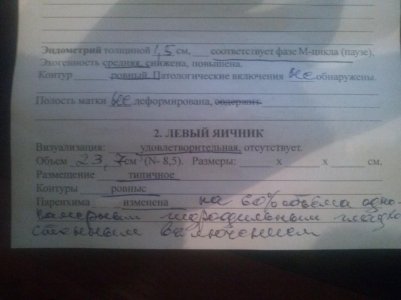 Эндометрий толщиной 1,5 см, соответствует фазе М-цикла (паузе),
Эхогенность средняя, снижена, повышена.
Контур ровный. Патологические включения не обнаружены.
Полость матки не деформирована, содержит.
2. ЛЕВЫЙ ЯИЧНИК
Визуализация: удовлетворительная, отсутствует.
Объем 23,7см (N- 8,5). Размеры: х х см.
Размещение типичное
Контуры ровные
Паренхима изменена на 60% объёма одно-
камерным гидрофильным гладко
стенным включением